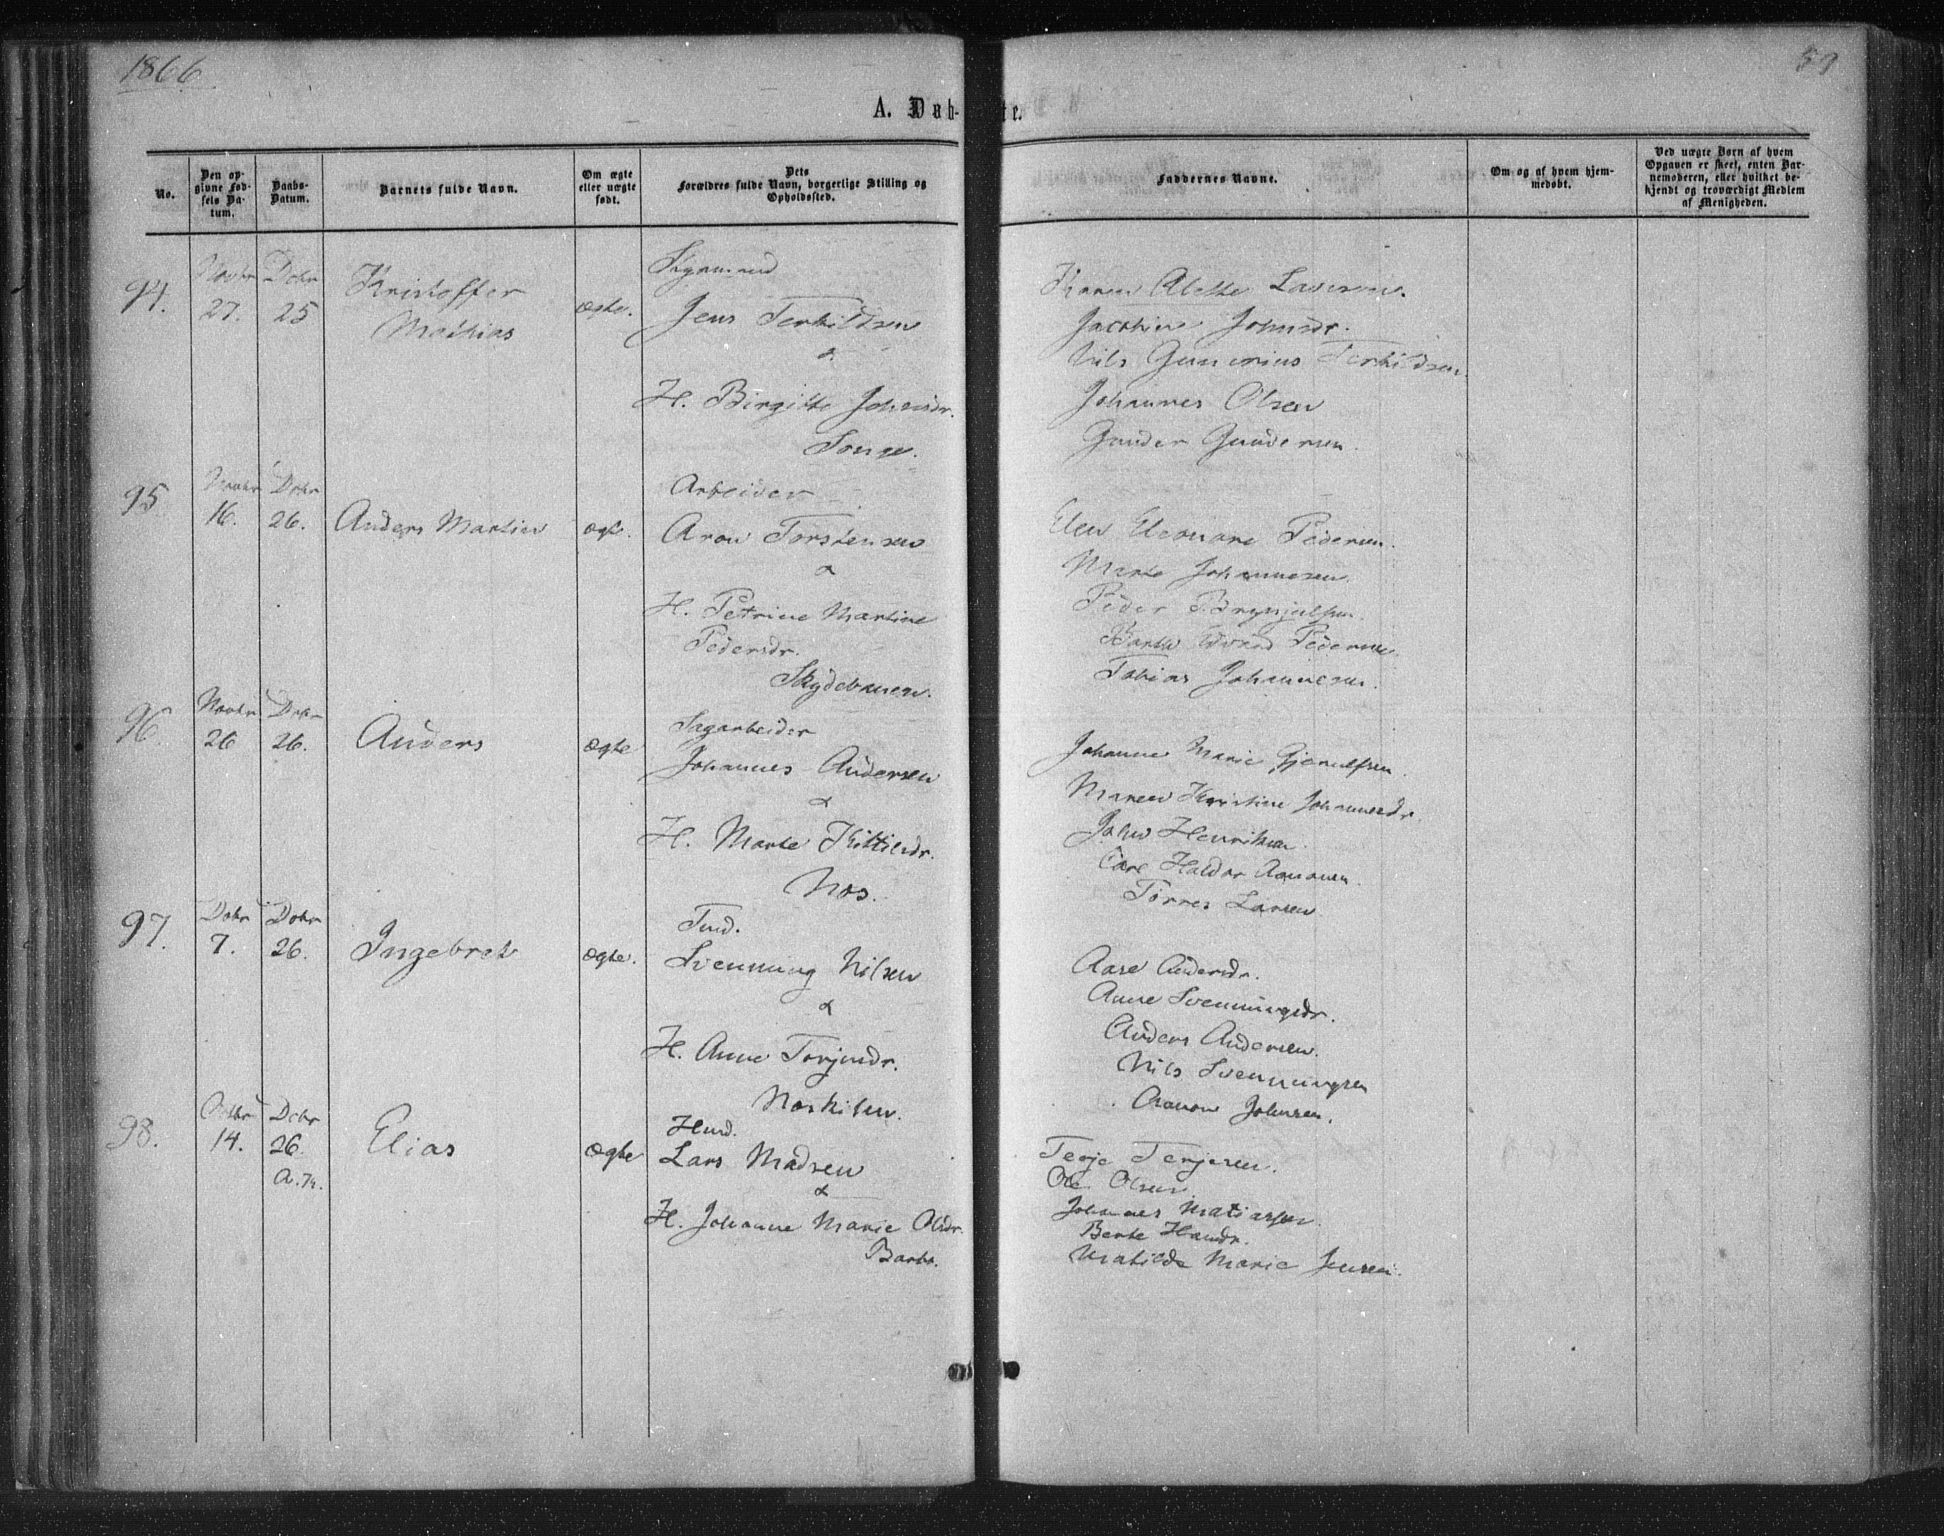 1866
59
A. Døbte.
No.
Den opgivne Fødsels Datum.
Daabs-Datum.
Barnets fulde Navn.
Om ægte eller uægte født.
Dets Forældres fulde Navn, borgerlige Stilling og Opholdssted.
Faddernes Navne.
Om og af hvem hjemmedøbt.
Ved uægte Børn af hvem Opgaven er skeet, enten Barnemoderen, eller hvilket bekjendt og troværdigt Medlem af Menigheden.
94.
Novbr 27.
Debr 25
Kristoffer
Mathias
ægte.
Jens Terkildsen
&
H. Birgitte Johnsdr.
Songe.
Karen Alette Larsen.
Jacobine Johnsdr.
Nils Gunerius Terkildsen.
Johannes Olsen
Gunder Gundersen.
95
Novbr 16.
Debr 26.
Anders Martin
ægt.
Arbeider
Aron Torstensen
&
H. Petrine Martine
Pedersdr.
Skydebanen.
Elen Eleonore Pedersen.
Marte Johannesen.
Peder Brynjulfsen.
Edvard Pedersen.
Tobias Johannesen.
96.
Novbr 26
Debr 26.
Anders
ægte
Sagarbeider
Johannes Andersen
&
H. Marte Kittilsdr.
Næs.
Johanne Marie Gjerulfsen.
Maren Kristine Johannesdr.
John Henriksen.
Carl Haldor Aanonsen.
Torres Larsen
97.
Debr 7.
Debr 26.
Ingebret
ægte.
Svenning Nilsen
&
H. Anne Torjusdr.
Næskilen.
Aase Andersdr.
Anne Svenningsdr.
Anders Andersen.
Nils Svenningsen
Aanon Johnsen.
98.
14.
Debr 26.
Elias
ægte
Husmd.
Lars Madsen
&
H. Johanne Marie Olsdr.
Barbo.
Terje Terjesen.
Ole Olsen
Johannes Matiassen.
Berte Hansdr.
Matilde Marie Jensen.